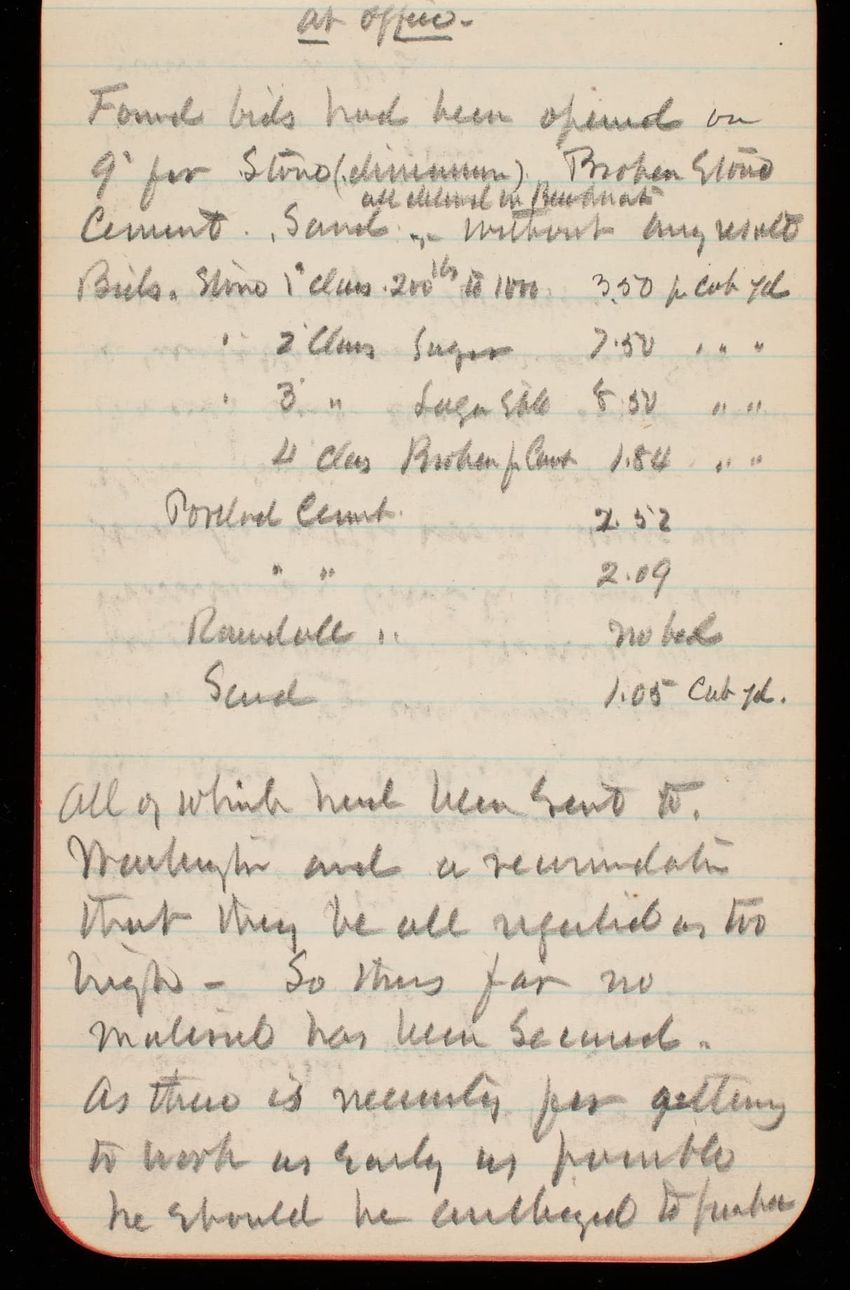 at office.
Found bids had been opened on
9" for Stone (dimension) Broken Stone
all delivered in
Cement. Sand without any result
Bids. Stone 1" class. 200 lbs to 1000 3.50 p cub yd
" 2" Class Larger 7.50 " " "
" 3" " Large 8.50 " "
4 class Broken p Cart 1.84 " "
Portland Cement. 2.52
" " 2.09
Rosendale " no bid
Sand 1.05 Cub yd.
All of which had been sent to.
Washington and a recommendation
that they be all rejected as too
high - So thus far no
material has been secured.
As there is necessity for getting
to work as early as possible
he should be authorized to purchase